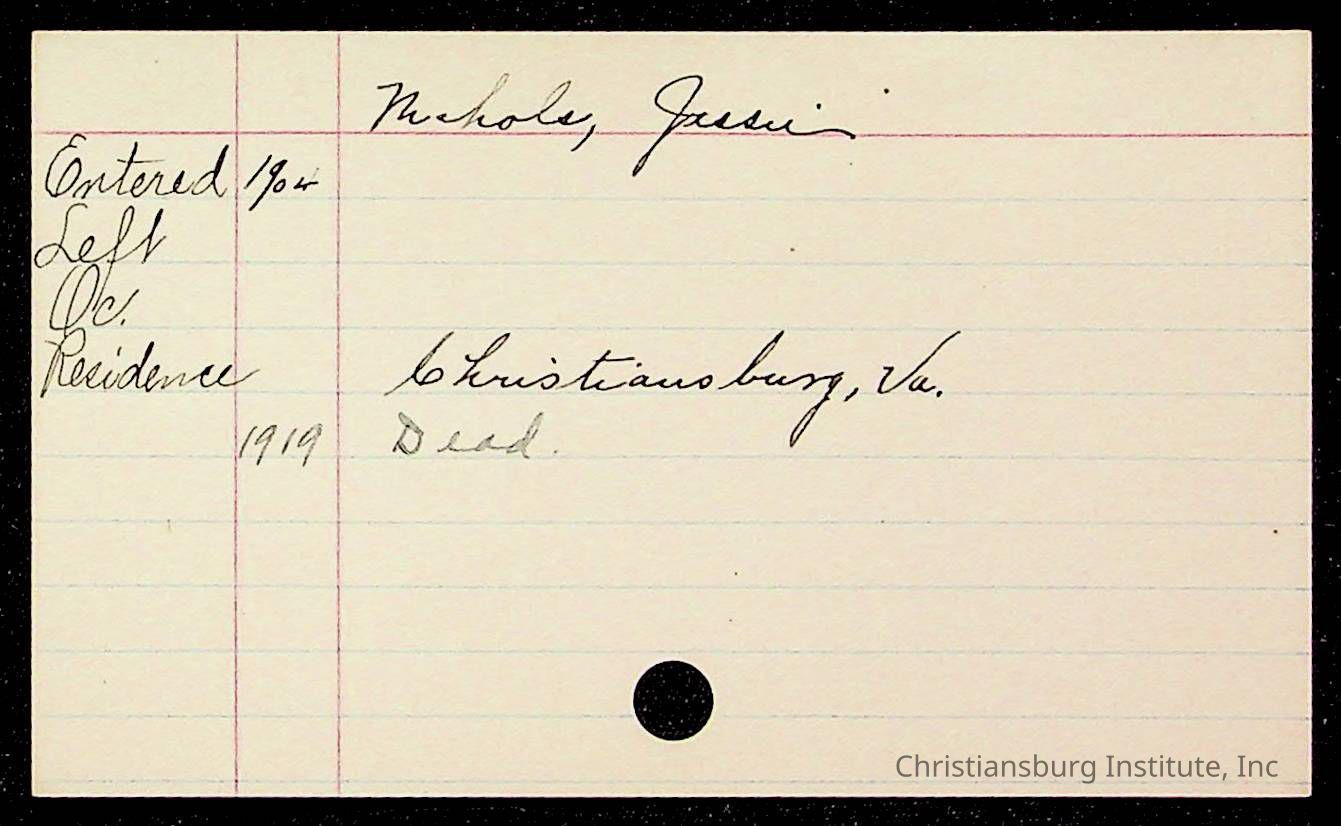 Nichols, Jessie
Entered 1904
Left
Oc.
Residence Christiansburg, Va.
1919 Dead.
Christiansburg Institute, Inc